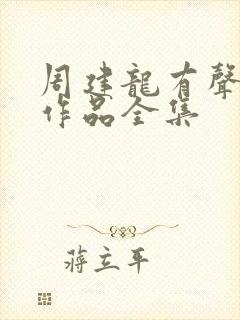 周建龍有聲
作品全集
蔣立平